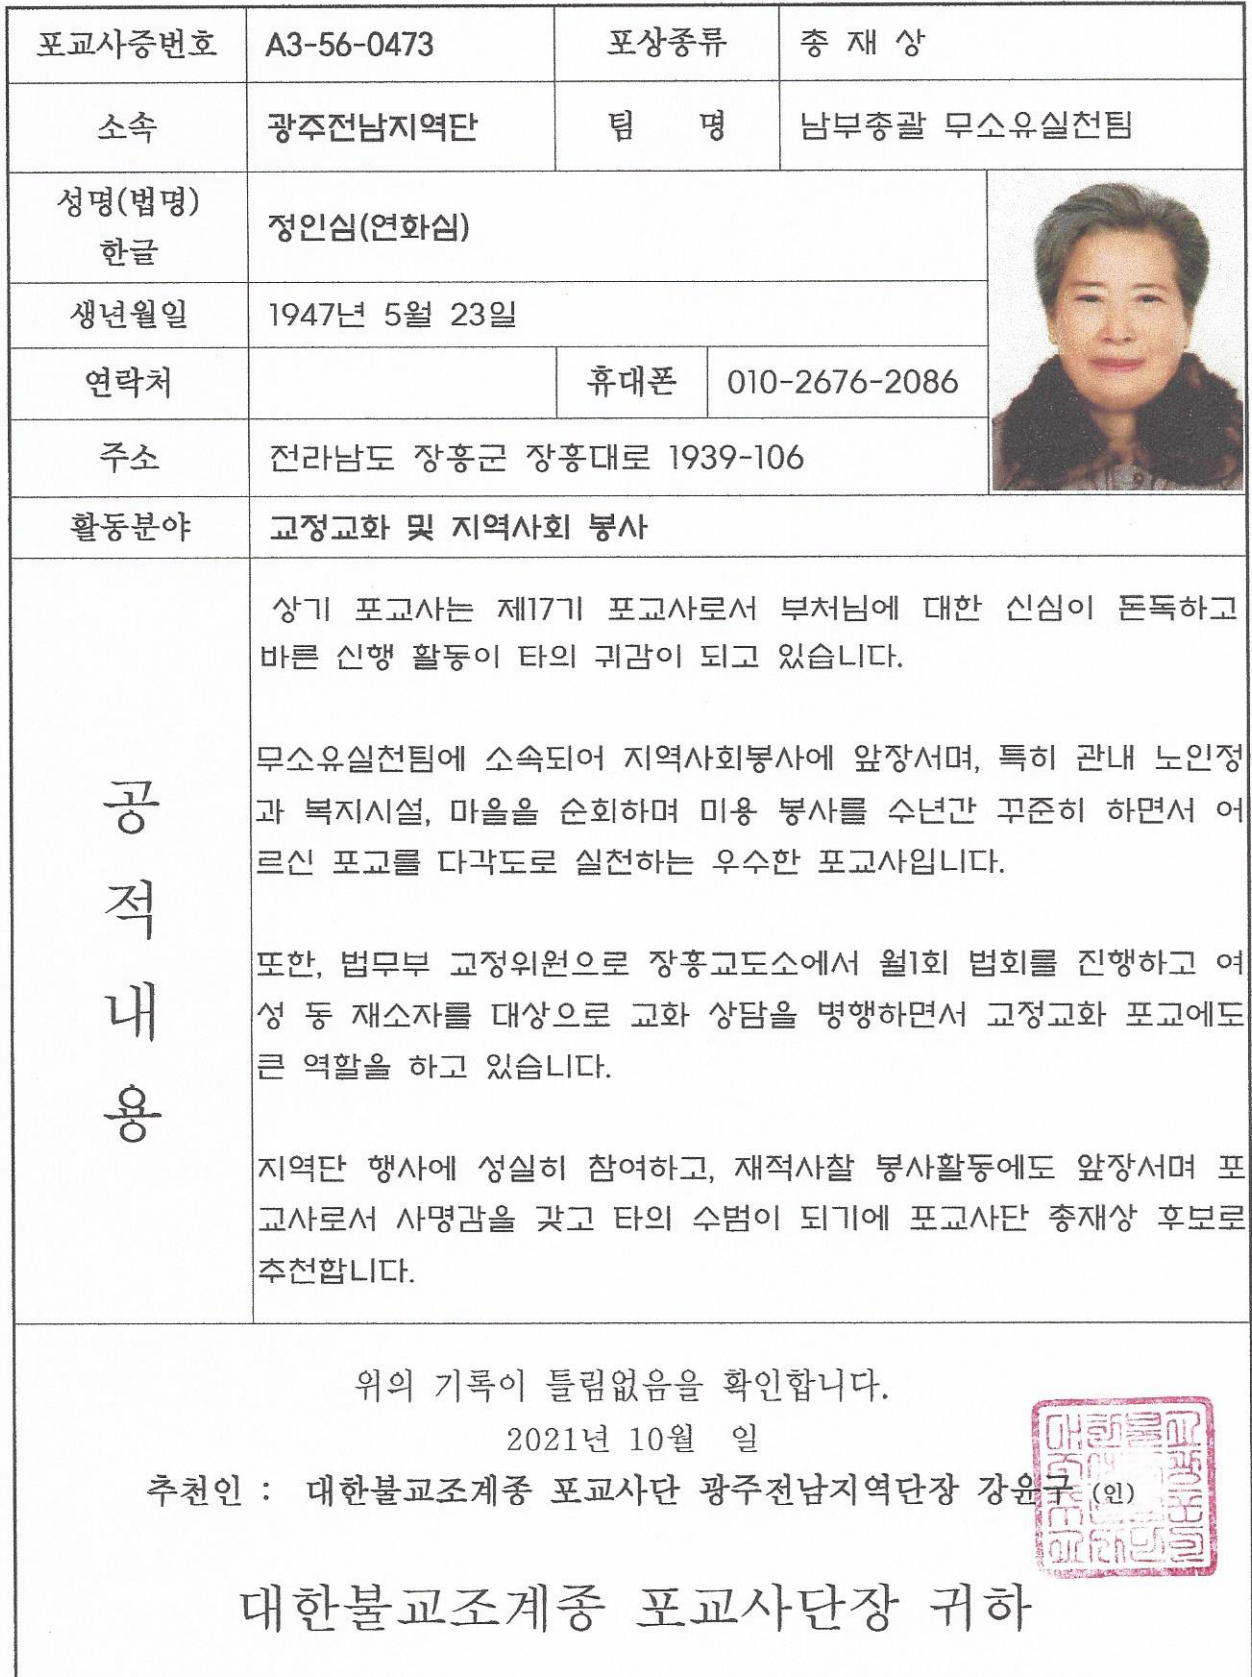 포교사증번호 A3-56-0473 포상종류 총 재 상
소속 광주전남지역단 팀 명 남부총괄 무소유실천팀
성명(법명)
한글 정인심(연화심)
생년월일 1947년 5월 23일
연락처 휴대폰 010-2676-2086
주소 전라남도 장흥군 장흥대로 1939-106
활동분야 교정교화 및 지역사회 봉사
공적내용
상기 포교사는 제17기 포교사로서 부처님에 대한 신심이 돈독하고
바른 신행 활동이 타의 귀감이 되고 있습니다.
무소유실천팀에 소속되어 지역사회봉사에 앞장서며, 특히 관내 노인정
과 복지시설, 마을을 순회하며 미용 봉사를 수년간 꾸준히 하면서 어
르신 포교를 다각도로 실천하는 우수한 포교사입니다.
또한, 법무부 교정위원으로 장흥교도소에서 월1회 법회를 진행하고 여
성 동 재소자를 대상으로 교화 상담을 병행하면서 교정교화 포교에도
큰 역할을 하고 있습니다.
지역단 행사에 성실히 참여하고, 재적사찰 봉사활동에도 앞장서며 포
교사로서 사명감을 갖고 타의 수범이 되기에 포교사단 총재상 후보로
추천합니다.
위의 기록이 틀림없음을 확인합니다.
2021년 10월 일
추천인 : 대한불교조계종 포교사단 광주전남지역단장 강윤구 (인)
대한불교조계종 포교사단장 귀하